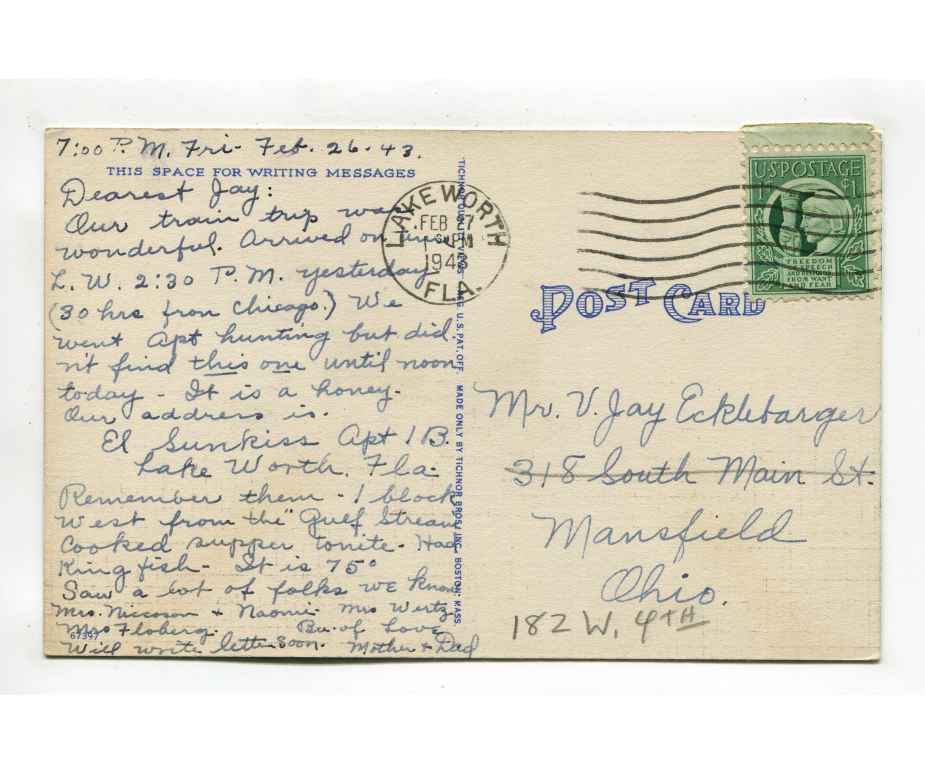 7:00 P.M. Fri- Feb. 26-43.
THIS SPACE FOR WRITING MESSAGES
Dearest Jay:
Our train trip was
wonderful. Arrived on time
L. W. 2:30 P.M. yesterday
(30 hrs from Chicago.) We
went Apt hunting but did
n't find this one until noon
today - It is a honey-
Our address is.
El Sunkiss Apt 1B.
Lake Worth, Fla.
Remember them - 1 block
West from the "Gulf Stream
Cooked supper tonite- Had
King fish- It is 75°
Saw a lot of folks we know
Mrs. + Naomi- Mrs Wertz,
Mrs Floberg. Bu. of Love
Will write letter soon. Mother + Dad
67397
MADE ONLY BY TICHNOR BROS., INC., BOSTON, MASS.
LAKE WORTH
FEB 27
PM
1943
FLA.
U.S. POSTAGE
1
FREEDOM
OF SPEECH
AND RELIGION
FROM WANT
AND FEAR
POST CARD
Mr. V. Jay Ecklebarger
318 South Main St.
Mansfield
Ohio.
182 W. 4TH